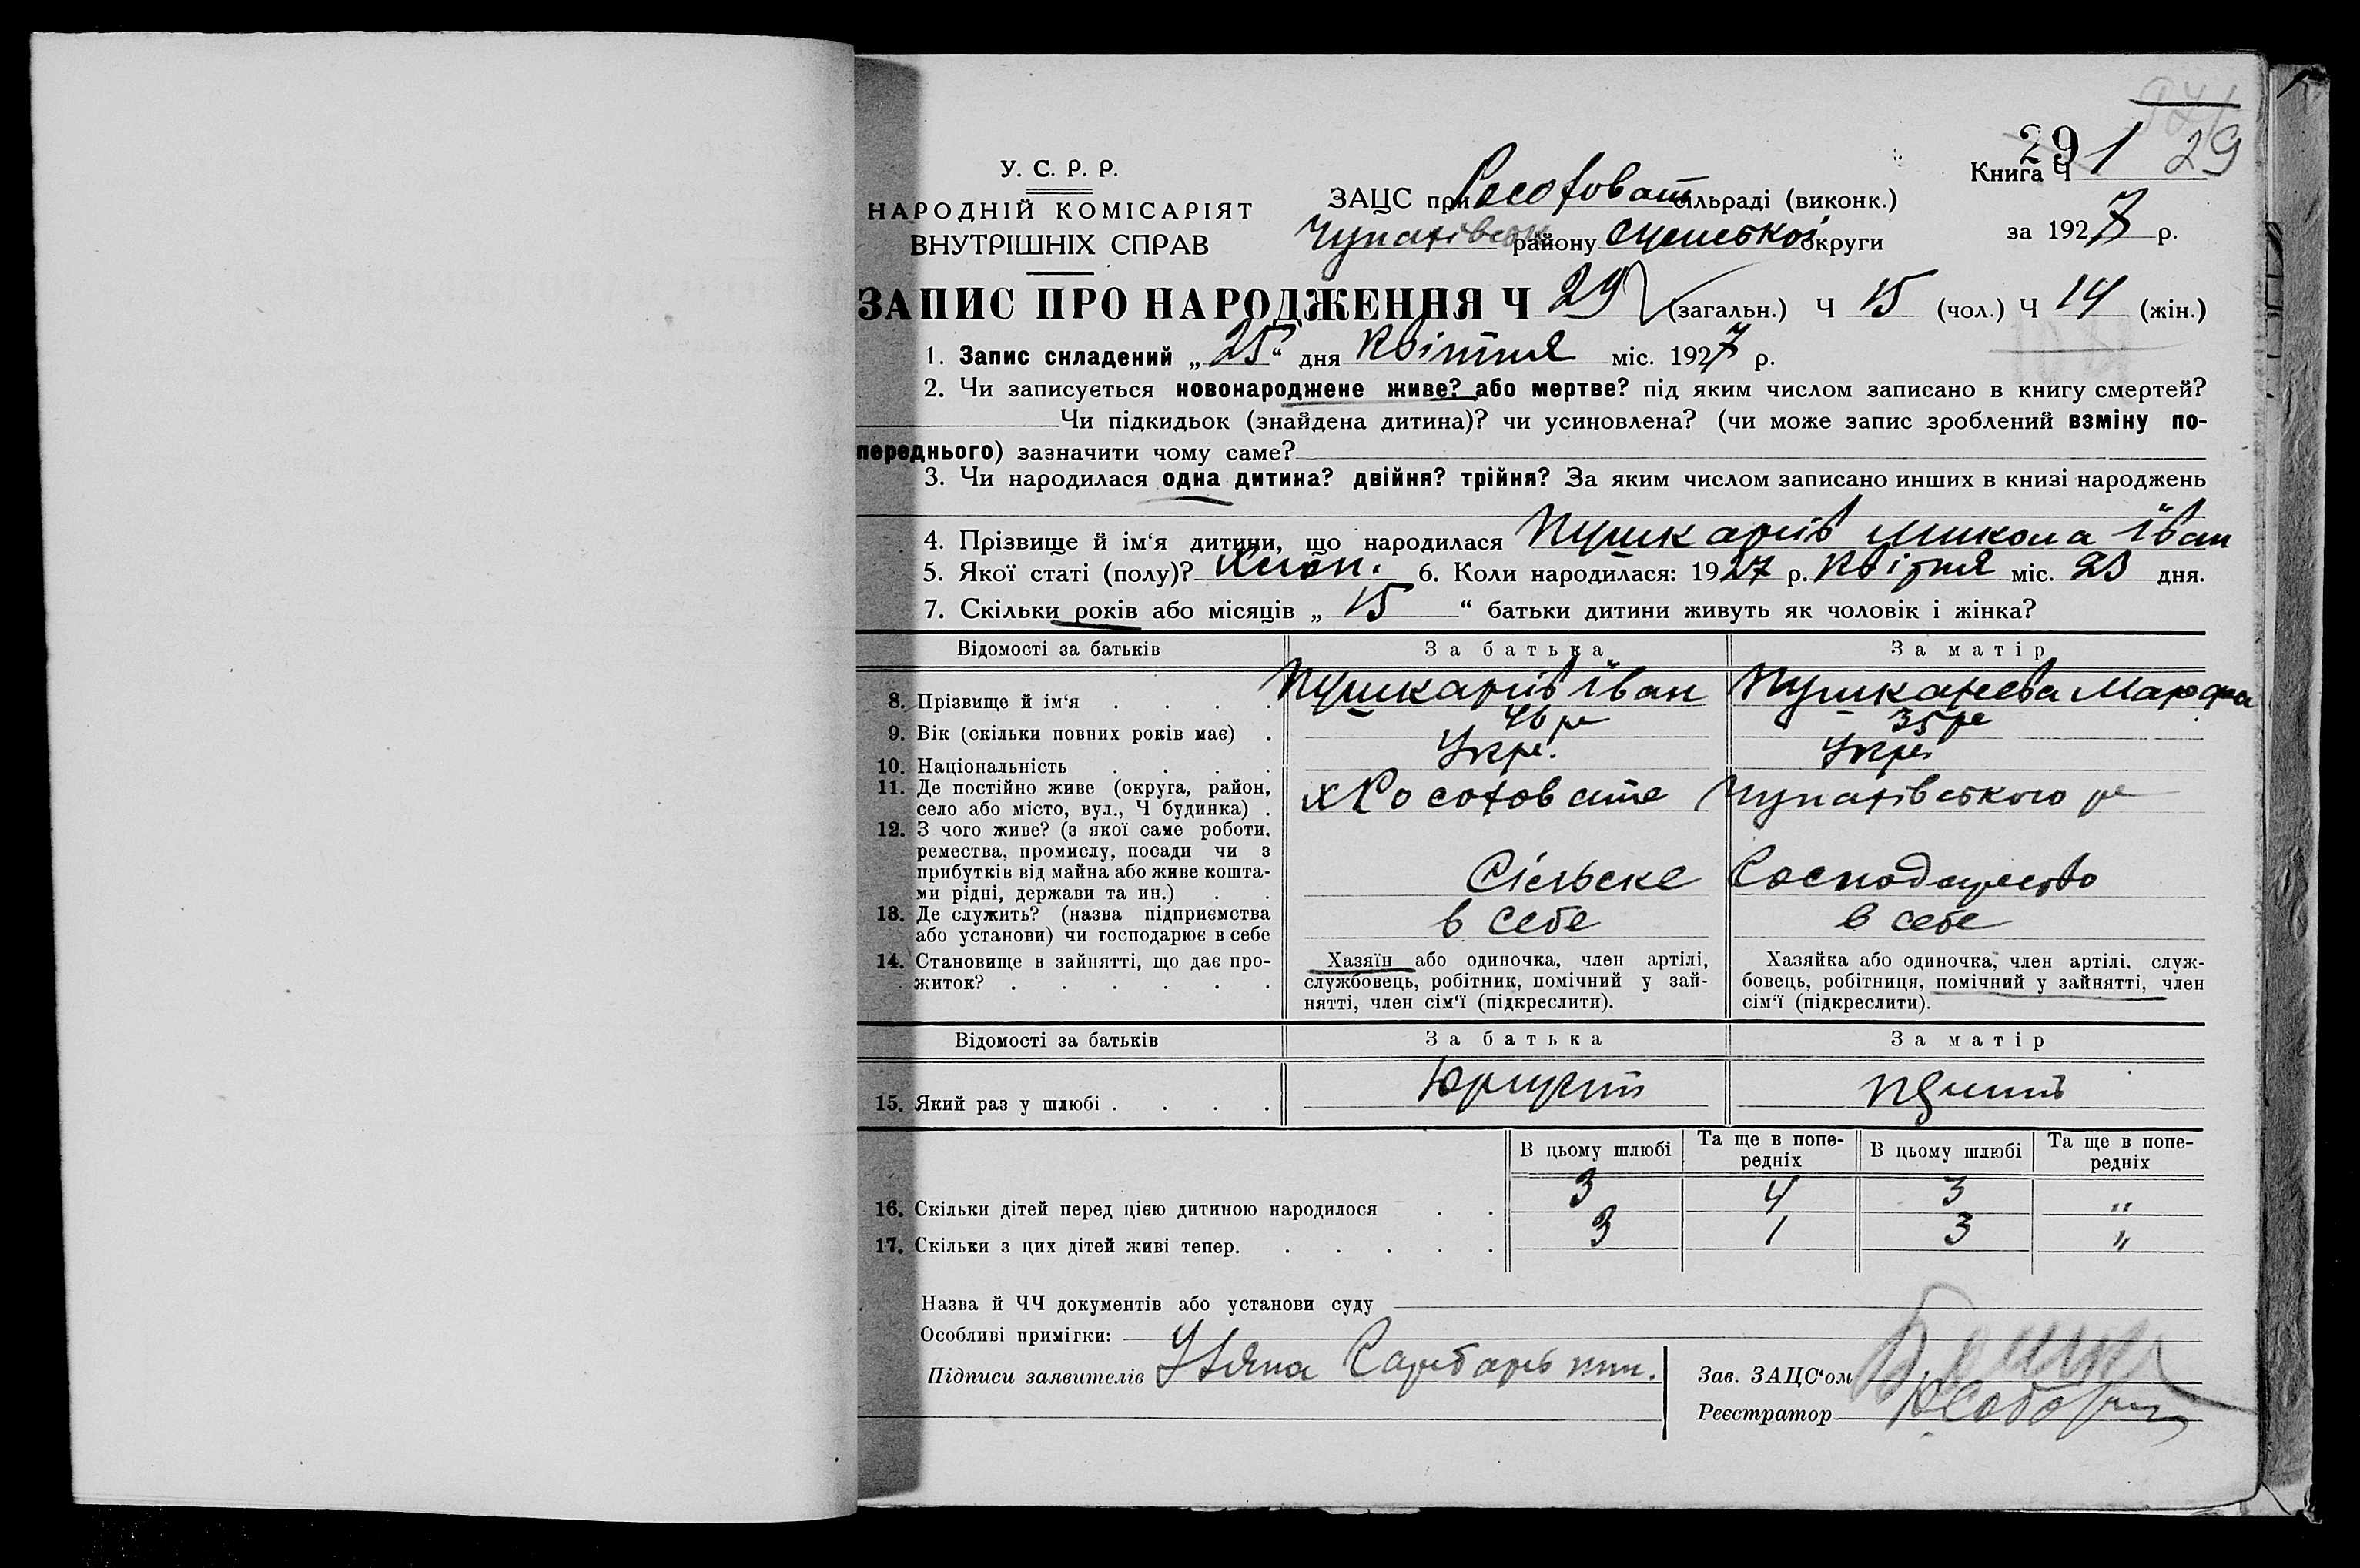 29 1 29
У. С. Р. Р.
НАРОДНІЙ КОМІСАРІЯТ
ВНУТРІШНІХ СПРАВ
Книга Ч
ЗАЦС при Рософоват сільраді (виконк.)
Чупахівськ району Сумської округи
за 1927 р.
ЗАПИС ПРО НАРОДЖЕННЯ Ч 29 (загальн.) Ч 15 (чол.) Ч 14 (жін.)
1. Запис складений „25“ дня Квітня міс. 1927 р.
2. Чи записується новонароджене живе? або мертве? під яким числом записано в книгу смертей?
Чи підкидьок (знайдена дитина)? чи усиновлена? (чи може запис зроблений взміну по-
переднього) зазначити чому саме?
3. Чи народилася одна дитина? двійня? трійня? За яким числом записано инших в книзі народжень
4. Прізвище й ім‘я дитини, що народилася Пушкарів Микола Іван
5. Якої статі (полу)? Хлоп. 6. Коли народилася: 1927 р. Квітня міс. 23 дня.
7. Скільки років або місяців „ 15 “ батьки дитини живуть як чоловік і жінка?
Відомості за батьків За батька За матір
8. Прізвище й ім‘я . . . . Пушкарів Іван Пушкарева Марфа
9. Вік (скільки повних років має) . 46 р 35 р
10. Національність . . . . Укр. Укр.
11. Де постійно живе (округа, район,
село або місто, вул., Ч будинка) . х Рософовате Чупахівського р
12. З чого живе? (з якої саме роботи,
ремества, промислу, посади чи з
прибутків від майна або живе кошта-
ми рідні, держави та ин.) . . Сільське Господарство
13. Де служить? (назва підприємства
або установи) чи господарює в себе в себе в себе
14. Становище в зайнятті, що дає про-
житок? . . . . . .
Хазяїн або одиночка, член артілі,
службовець, робітник, помічний у зай-
нятті, член сім‘ї (підкреслити).
Хазяйка або одиночка, член артілі, служ-
бовець, робітниця, помічний у зайнятті, член
сім‘ї (підкреслити).
Відомості за батьків За батька За матір
15. Який раз у шлюбі . . . .
В цьому шлюбі Та ще в попе-
редніх В цьому шлюбі Та ще в попе-
редніх
16. Скільки дітей перед цією дитиною народилося . . 3 4 3 „
17. Скільки з цих дітей живі тепер. . . . . . 3 1 3 „
Назва й ЧЧ документів або установи суду
Особливі примітки:
Підписи заявителів
Зав. ЗАЦС‘ом
Реєстратор